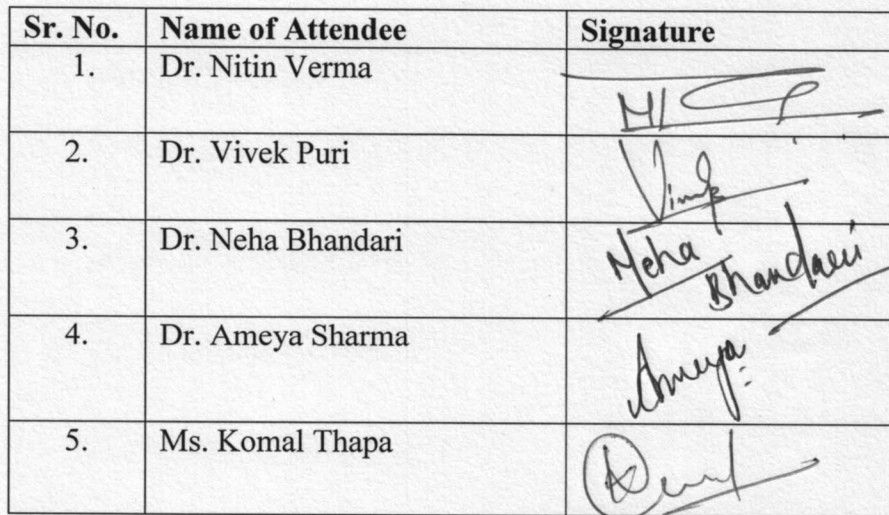 Sr. No. Name of Attendee Signature
1. Dr. Nitin Verma
2. Dr. Vivek Puri Vivek
3. Dr. Neha Bhandari Neha Bhandari
4. Dr. Ameya Sharma Ameya
5. Ms. Komal Thapa